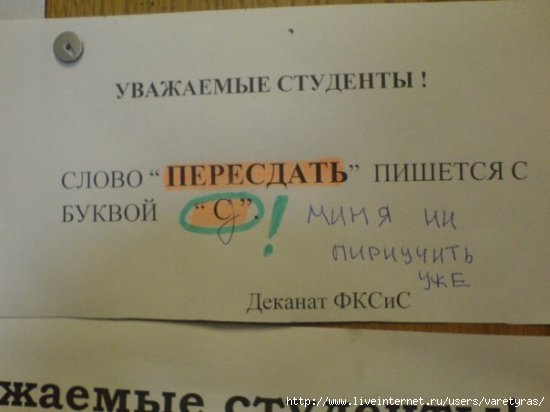 УВАЖАЕМЫЕ СТУДЕНТЫ !
СЛОВО “ ПЕРЕСДАТЬ” ПИШЕТСЯ С
БУКВОЙ “ С ”. ! миня ни
пириучить
уже
Деканат ФКСиС
жаемые студенты
http://www.liveinternet.ru/users/varetyras/